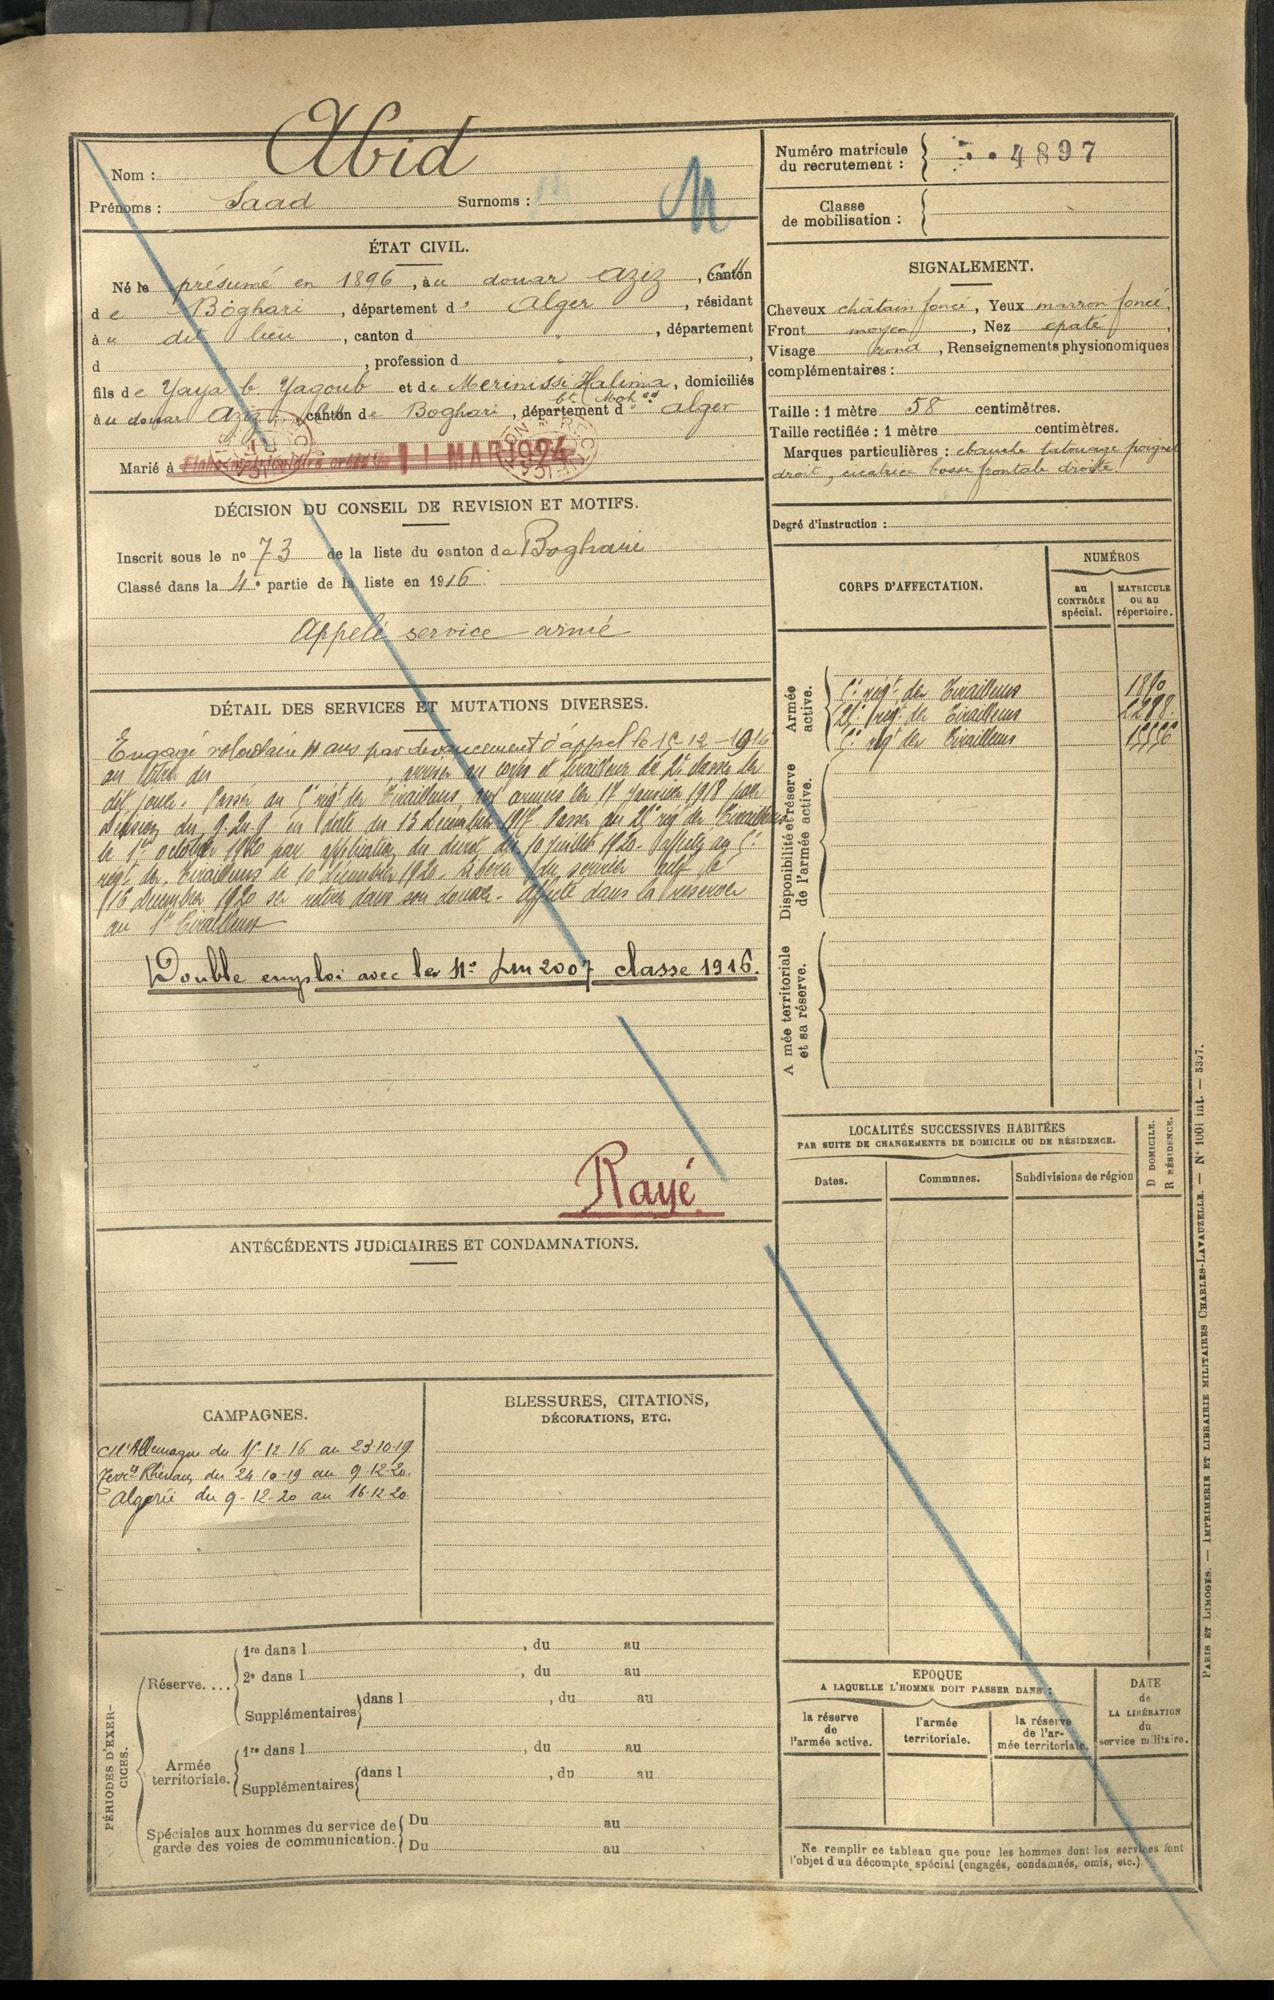 Nom : Abid
Prénoms : Saad Surnoms :
M
ÉTAT CIVIL.
Né le présumé en 1896, au douar Aziz, canton
de Boghari, département d' Alger, résidant
à u dit lieu, canton d " , département
d , profession d " ,
fils de Yaya b. Yagoub et de Merinissi Halima, domiciliés
bt Mohed
à u douar Aziz, canton de Boghari, département d' Alger
Marié à
11 MAR 1924
DÉCISION DU CONSEIL DE REVISION ET MOTIFS.
Inscrit sous le n° 73 de la liste du canton de Boghari
Classé dans la 4e partie de la liste en 1916.
Appelé service armé
DÉTAIL DES SERVICES ET MUTATIONS DIVERSES.
Engagé volontaire 4 ans par devancement d'appel le 15-12-1916
au titre du arrivé au corps et tirailleur de 2e classe le
dit jour. Passé au régt de Tirailleurs, aux armées le 17 Janvier 1918 par
décision du G.Q.G en date du 13 décembre 1917. Passé au 21e régt de Tirailleurs
le 1er octobre 1920 par application du décret du 10 juillet 1920. Affecté au
régt de Tirailleurs le 10 décembre 1920. Libéré du service actif le
16 décembre 1920 se retire dans son douar. Affecté dans la réserve
au 1er Tirailleurs
Double emploi avec le N° 2007 classe 1916.
Rayé
ANTÉCÉDENTS JUDICIAIRES ET CONDAMNATIONS.
CAMPAGNES.
C/ l'Allemagne du 15-12-16 au 23-10-19
Terres Rhénans du 24-10-19 au 9-12-20.
Algérie du 9-12-20 au 16-12-20
BLESSURES, CITATIONS,
DÉCORATIONS, ETC.
PÉRIODES D'EXERCICES.
Réserve....
1re dans l , du au
2e dans l , du au
Supplémentaires dans l , du au
Armée
territoriale.
1re dans l , du au
Supplémentaires dans l , du au
Spéciales aux hommes du service de
garde des voies de communication.
Du au
Du au
Numéro matricule
du recrutement : 4897
Classe
de mobilisation :
SIGNALEMENT.
Cheveux châtain foncé, Yeux marron foncé,
Front moyen, Nez épaté,
Visage rond, Renseignements physionomiques
complémentaires :
Taille : 1 mètre 58 centimètres.
Taille rectifiée : 1 mètre centimètres.
Marques particulières : ébauche tatouage poignet
droit, cicatrice bosse frontale droite.
Degré d'instruction :
CORPS D'AFFECTATION.
NUMÉROS
au
CONTRÔLE
spécial.
MATRICULE
ou au
répertoire.
Armée
active.
régt de Tirailleurs
21e régt de Tirailleurs
régt de Tirailleurs
Disponibilité et réserve
de l'armée active.
A mée territoriale
et sa réserve.
LOCALITÉS SUCCESSIVES HABITÉES
PAR SUITE DE CHANGEMENTS DE DOMICILE OU DE RÉSIDENCE.
Dates.
Communes.
Subdivisions de région
D DOMICILE.
R RÉSIDENCE.
EPOQUE
A LAQUELLE L'HOMME DOIT PASSER DANS :
la réserve
de
l'armée active.
l'armée
territoriale.
la réserve
de l'ar-
mée territoriale.
DATE
de
LA LIBÉRATION
du
service militaire.
Ne remplir ce tableau que pour les hommes dont les services font
l'objet d un décompte spécial (engagés, condamnés, omis, etc.)
PARIS ET LIMOGES. — IMPRIMERIE ET LIBRAIRIE MILITAIRES CHARLES-LAVAUZELLE. — N° 100i int. — 5327.